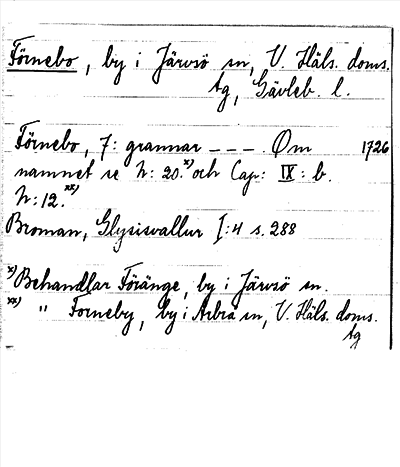 Förnebo, by i Järvsö sn, V. Häls. doms.
tg, Gävleb. l.
Förnebo, 7: grannar - - -. Om 1726
namnet se N: 20.x) och Cap: IX: b.
N: 12.xx)
Broman, Glysisvallur I:4 s. 288
x) Behandlar Föränge, by i Järvsö sn.
xx) " Forneby, by i Arbrå sn, V. Häls. doms.
tg